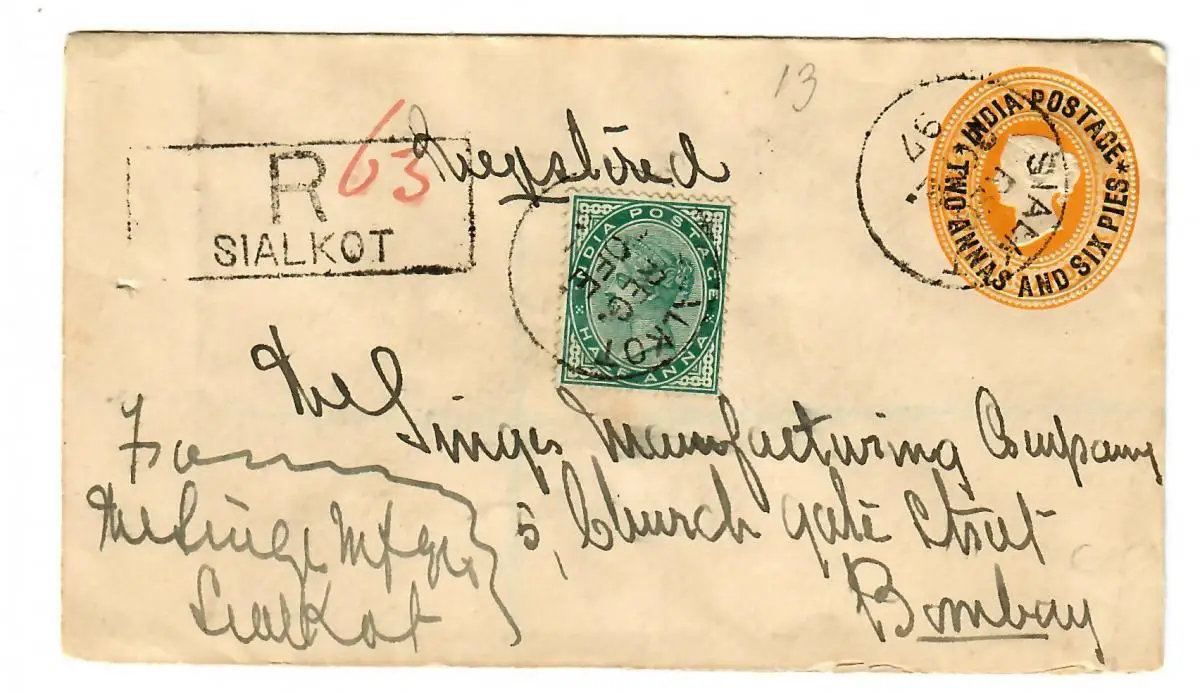 13
Registered
R 63
SIALKOT
★ INDIA POSTAGE ★
TWO ANNAS AND SIX PIES
97
INDIA POSTAGE
HALF ANNA
SIALKOT
REG.
The Singer Manufacturing Company
5, Church gate Street
Bombay
From
The Singer Mfg Co
Sialkot